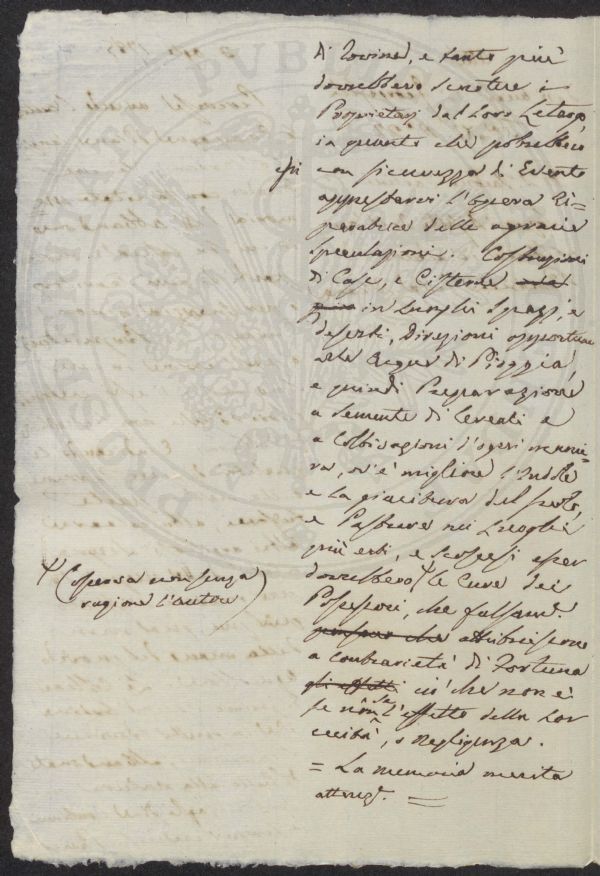 di Rovine, e tanto più
dovrebbero scuotere i
Proprietarj dal loro Letargo
in quanto che potrebbero
essi
con sicurezza di Evento
apprestarvi l'opera Ri=
paratrice delle agrarie
speculazioni. Costruzioni
di Case, e Cisterne
in lunghi spazj, e
deserti, Direzioni opportune
alle Acque di Pioggia,
e quindi Preparazione
a semente di Cereali e
a Coltivazioni d'ogni manie-
ra, ov'è migliore l'Indole
e la giacitura del suolo,
e Pasture nei luoghi
più erti, e scoscesi esser
dovrebbero le Cure dei
(osserva non senza
ragione l'autore)
Possessori, che falsamte.
pensar che attribuiscono
a contrarietà di Fortuna
gli effetti ciò che non è
se non se l'effetto della lor
cecità, o negligenza.
= La memoria merita